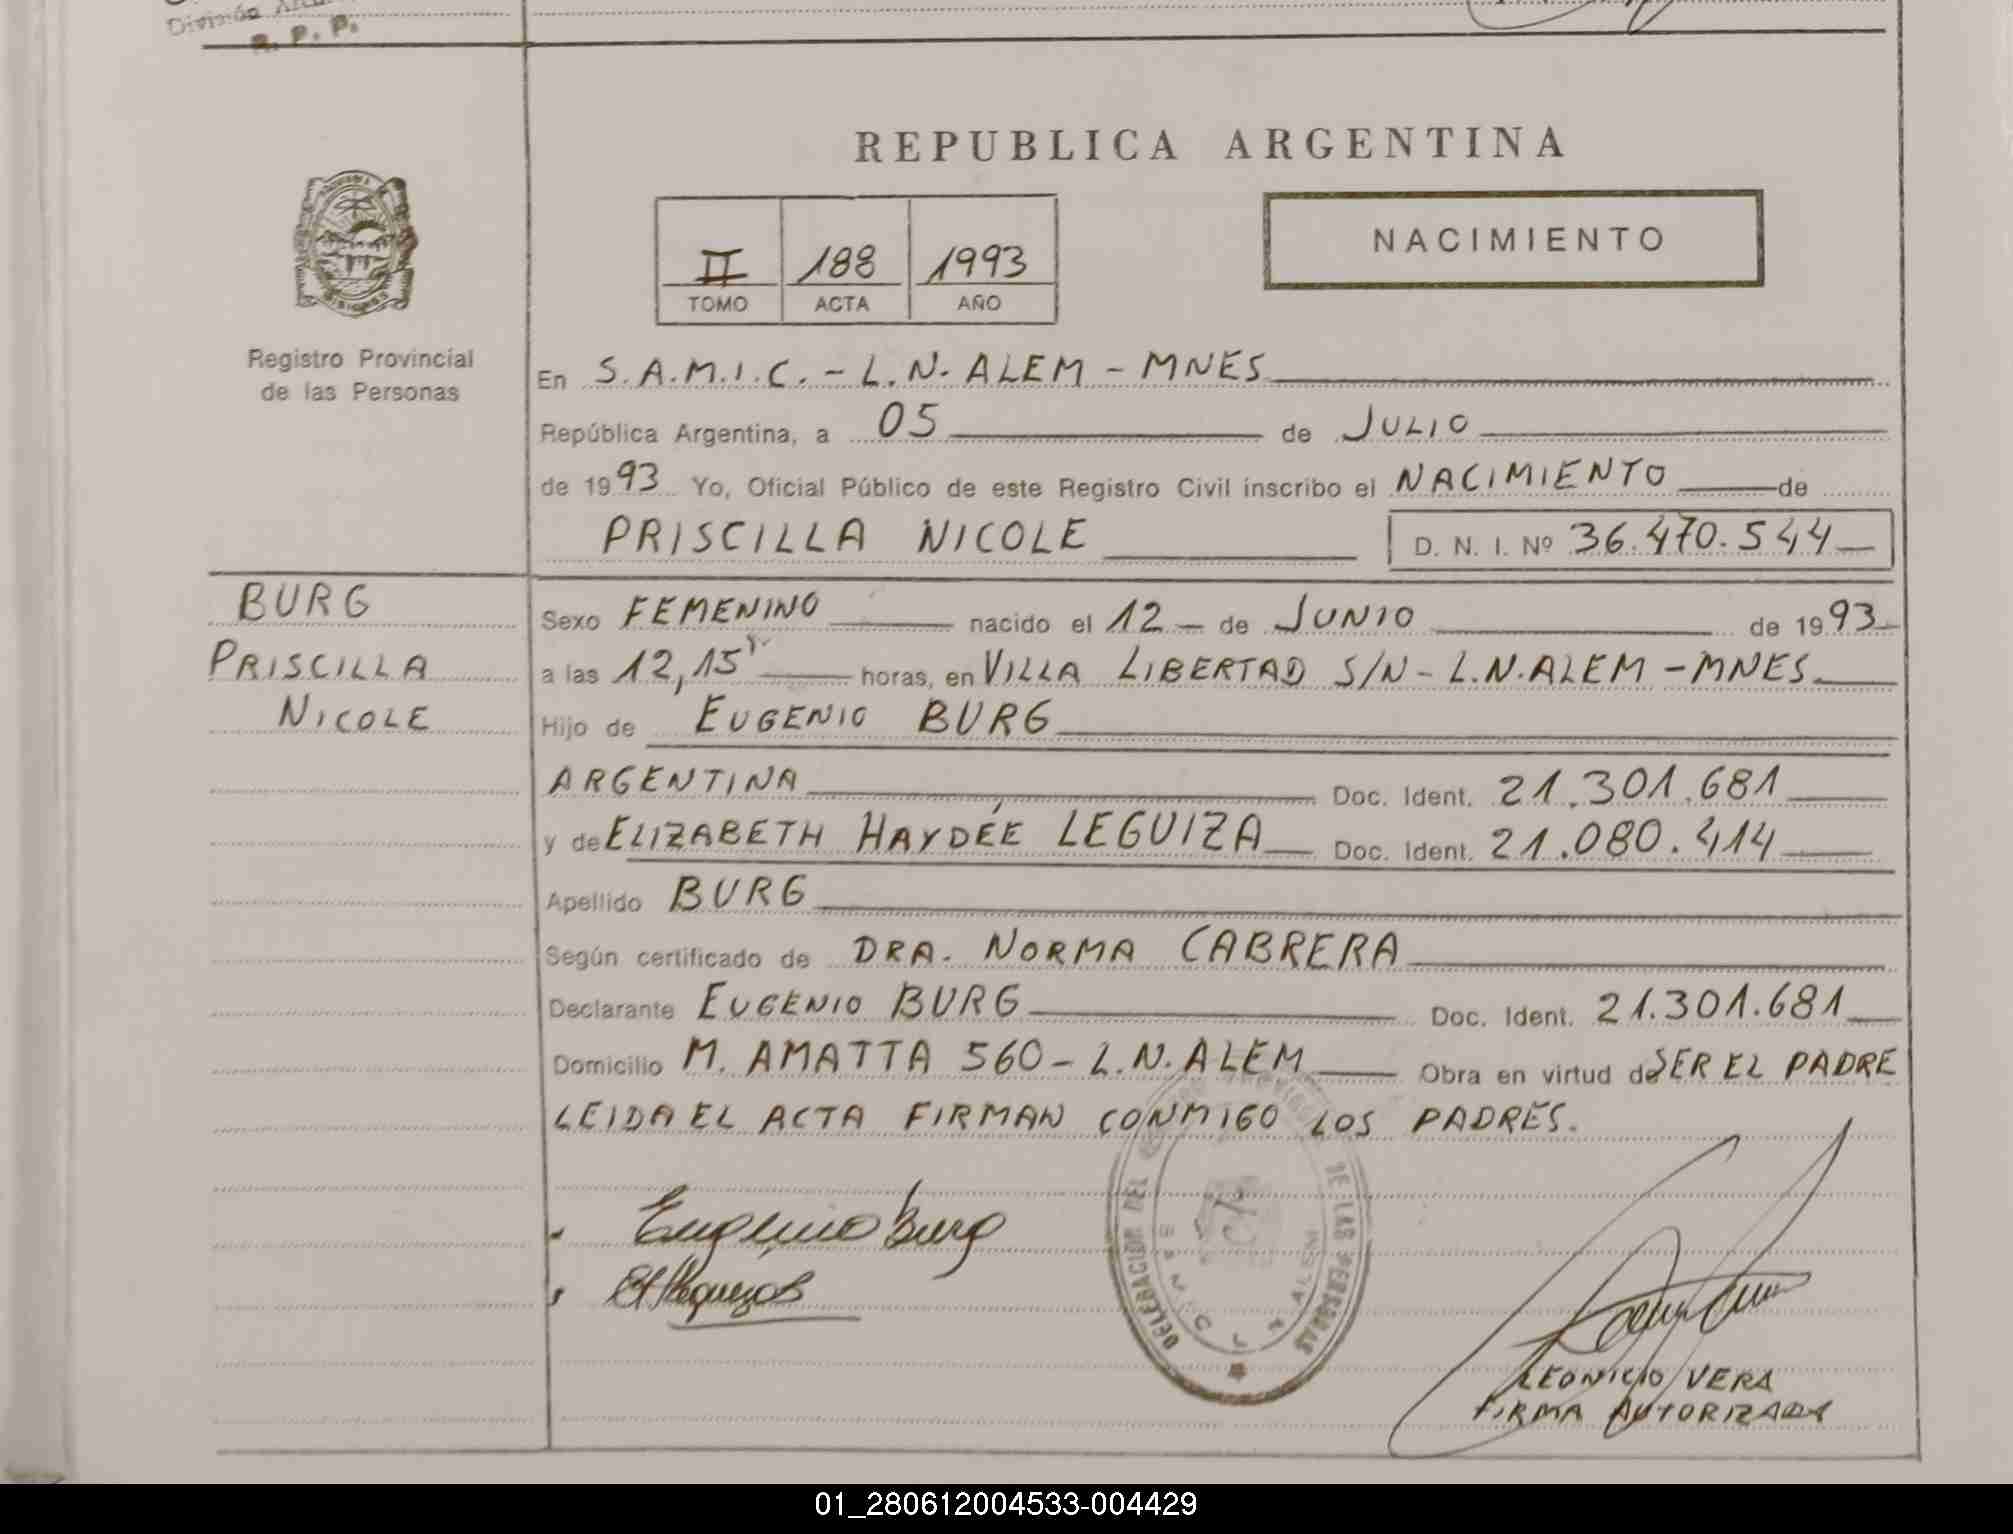 R. P. P.
REPUBLICA ARGENTINA
NACIMIENTO
II 188 1993
TOMO ACTA AÑO
Registro Provincial
de las Personas
En S.A.M.I.C. - L.N. ALEM - MNES
República Argentina, a 05 de JULIO
de 1993 Yo, Oficial Público de este Registro Civil inscribo el NACIMIENTO de
PRISCILLA NICOLE D. N. I. Nº 36.470.544
BURG
PRISCILLA
NICOLE
Sexo FEMENINO nacido el 12 de JUNIO de 1993
a las 12,15 horas, en VILLA LIBERTAD S/N - L.N. ALEM - MNES
Hijo de EUGENIO BURG
ARGENTINA Doc. Ident. 21.301.681
y de ELIZABETH HAYDÉE LEGUIZA Doc. Ident. 21.080.414
Apellido BURG
Según certificado de DRA. NORMA CABRERA
Declarante EUGENIO BURG Doc. Ident. 21.301.681
Domicilio M. AMATTA 560 - L.N. ALEM Obra en virtud de SER EL PADRE
LEIDA EL ACTA FIRMAN CONMIGO LOS PADRES.
Eugenio Burg
DELEGACION DEL DE LAS PERSONAS
ALEM
LEONICIO VERA
FIRMA AUTORIZADA
01_280612004533-004429